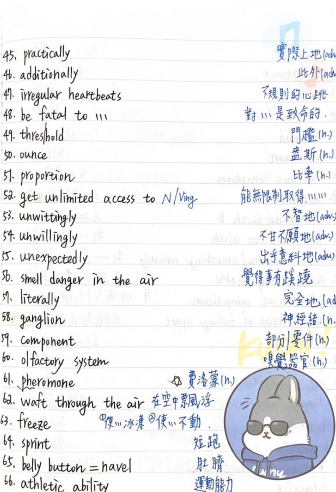 45. practically 實際上地(adv
46. additionally 此外(adv
47. irregular heartbeats 不規則的心跳
48. be fatal to ... 對...是致命的.
49. threshold 門檻(n.)
50. ounce 盎斯(n.)
51. proportion 比率(n.)
52. get unlimited access to N/Ving 能無限制取得......
53. unwittingly 不智地(adv.)
54. unwillingly 不甘不願地(adv.)
55. unexpectedly 出乎意料地(adv.)
56. smell danger in the air 覺得事有蹊蹺
57. literally 完全地(ad
58. ganglion 神經結(n.
59. component 部分/零件(n.)
60. olfactory system 嗅覺器官(n.)
61. pheromone 費洛蒙(n.)
62. waft through the air 在空中飄浮
63. freeze ①使...冰凍 ②使...不動.
64. sprint 短跑
65. belly button = navel 肚臍
66. athletic ability 運動能力